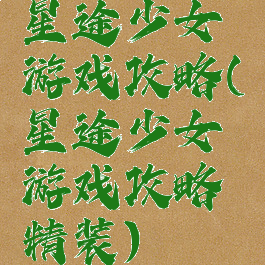 星途少女
游戏攻略(
星途少女
游戏攻略
精装)